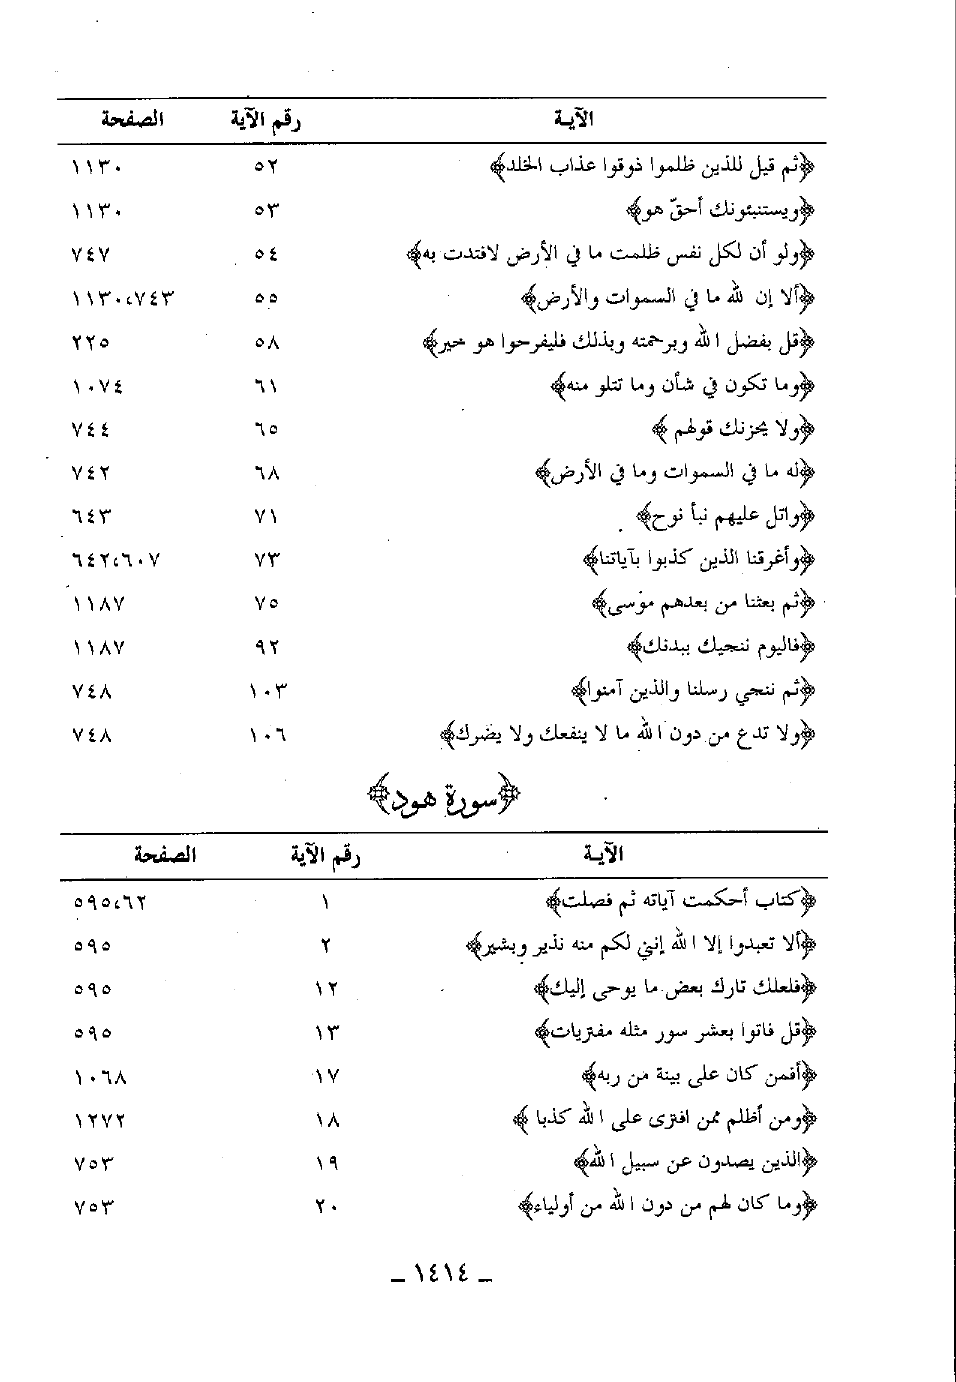 الآيـة رقم الآية الصفحة
﴿ثم قيل للذين ظلموا ذوقوا عذاب الخلد﴾ ٥٢ ١١٣٠
﴿ويستنبئونك أحقّ هو﴾ ٥٣ ١١٣٠
﴿ولو أن لكل نفس ظلمت ما في الأرض لافتدت به﴾ ٥٤ ٧٤٧
﴿ألا إن لله ما في السموات والأرض﴾ ٥٥ ٧٤٣،١١٣٠
﴿قل بفضل الله وبرحمته وبذلك فليفرحوا هو خير﴾ ٥٨ ٢٢٥
﴿وما تكون في شأن وما تتلو منه﴾ ٦١ ١٠٧٤
﴿ولا يحزنك قولهم ﴾ ٦٥ ٧٤٤
﴿له ما في السموات وما في الأرض﴾ ٦٨ ٧٤٢
﴿واتل عليهم نبأ نوح﴾ ٧١ ٦٤٣
﴿وأغرقنا الذين كذبوا بآياتنا﴾ ٧٣ ٦٠٧،٦٤٢
﴿ثم بعثنا من بعدهم موسى﴾ ٧٥ ١١٨٧
﴿فاليوم ننجيك ببدنك﴾ ٩٢ ١١٨٧
﴿ثم ننجي رسلنا والذين آمنوا﴾ ١٠٣ ٧٤٨
﴿ولا تدع من دون الله ما لا ينفعك ولا يضرك﴾ ١٠٦ ٧٤٨
﴿سورة هود﴾
الآيـة رقم الآية الصفحة
﴿كتاب أحكمت آياته ثم فصلت﴾ ١ ٦٢،٥٩٥
﴿ألا تعبدوا إلا الله إنني لكم منه نذير وبشير﴾ ٢ ٥٩٥
﴿فلعلك تارك بعض ما يوحى إليك﴾ ١٢ ٥٩٥
﴿قل فاتوا بعشر سور مثله مفتريات﴾ ١٣ ٥٩٥
﴿أفمن كان على بينة من ربه﴾ ١٧ ١٠٦٨
﴿ومن أظلم ممن افترى على الله كذبا ﴾ ١٨ ١٢٧٢
﴿الذين يصدون عن سبيل الله﴾ ١٩ ٧٥٣
﴿وما كان لهم من دون الله من أولياء﴾ ٢٠ ٧٥٣
ـ ١٤١٤ ـ